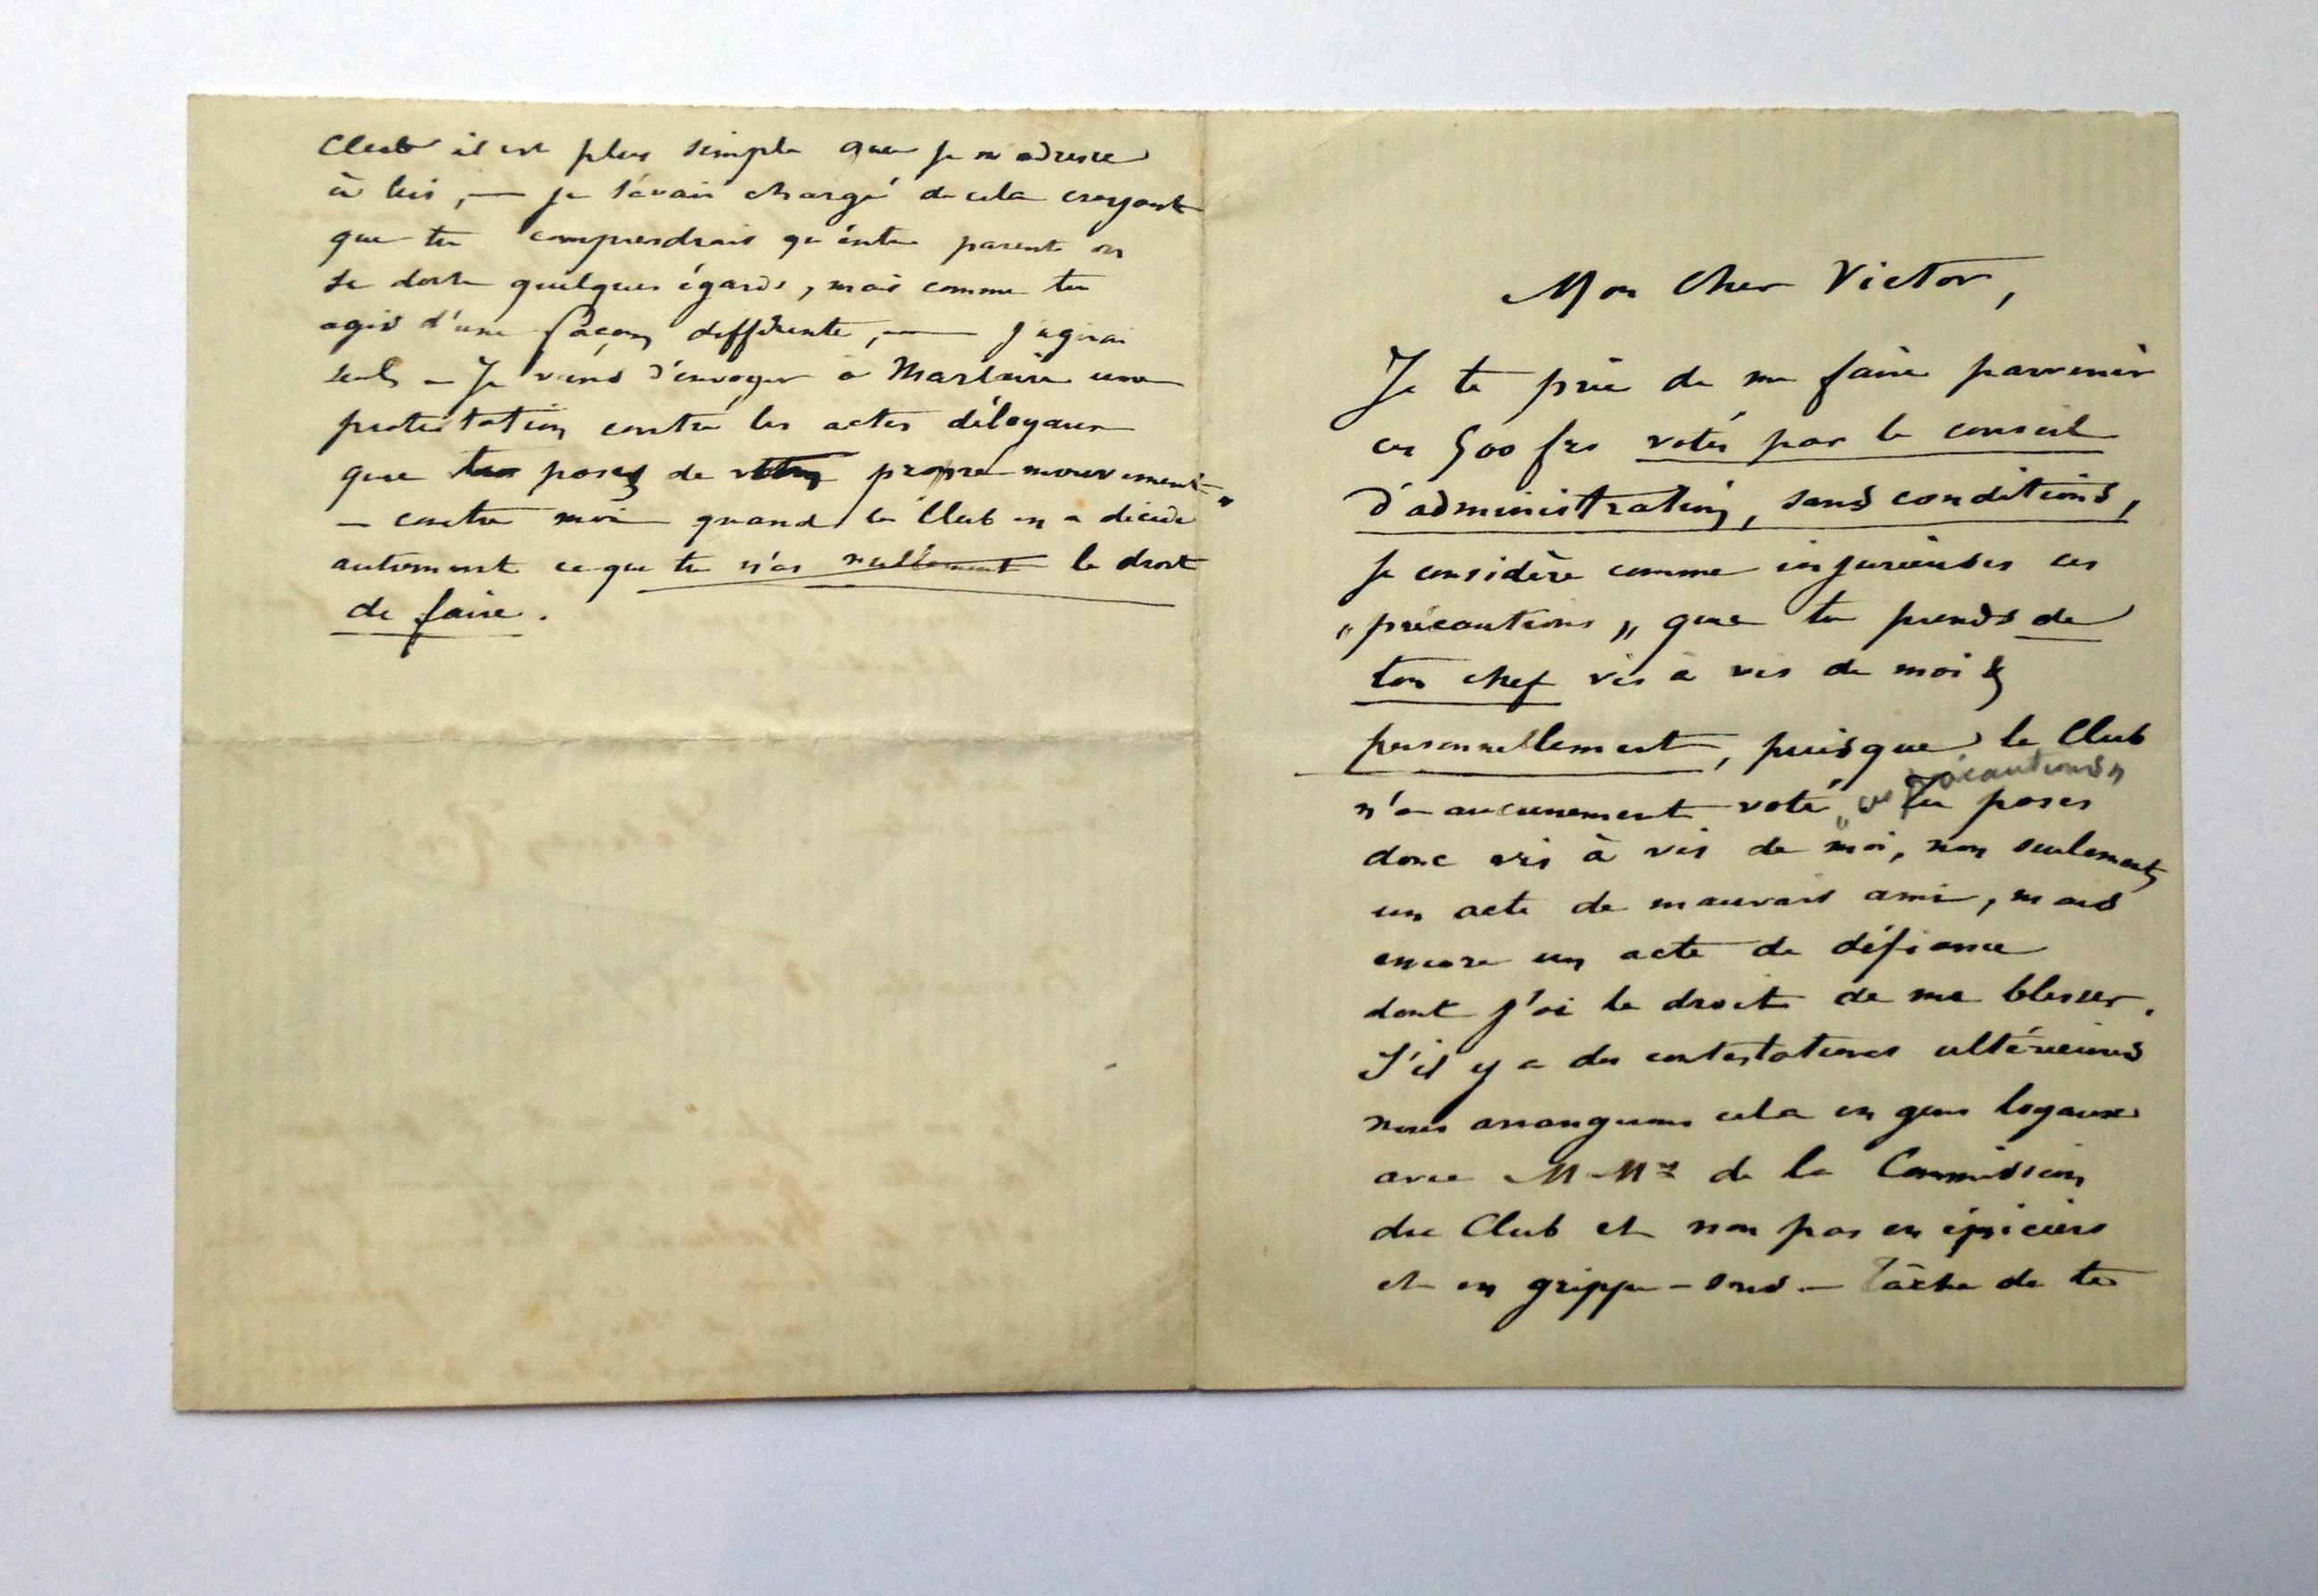 Mon Cher Victor,
Je te prie de me faire parvenir
ces 500 frs votés par le conseil
d'administration, sans conditions,
je considère comme injurieuses ces
„ précautions „ que tu prends de
ton chef vis à vis de moi &
personnellement, puisque le Club
n'a aucunement voté „ ces précautions „ Tu poses
donc vis à vis de moi, non seulement
un acte de mauvais ami, mais
encore un acte de défiance
dont j'ai le droit de me blesser.
S'il y a des contestations ultérieures
nous arrangerons cela en gens loyaux
avec M.Mrs de la Commission
du Club et non pas en épiciers
et en grippe-sous. — Tâche de te
Club il est plus simple que je m'adresse
à lui, — je t'avais chargé de cela croyant
que tu comprendrais qu'entre parent on
se doit quelques égards, mais comme tu
agis d'une façon différente, — j'agirai
seul. — Je viens d'envoyer à Marlaire une
protestation contre les actes déloyaux
que tu poses de propre mouvement "
— contre moi quand le Club en a décidé
autrement ce que tu n'as nullement le droit
de faire.